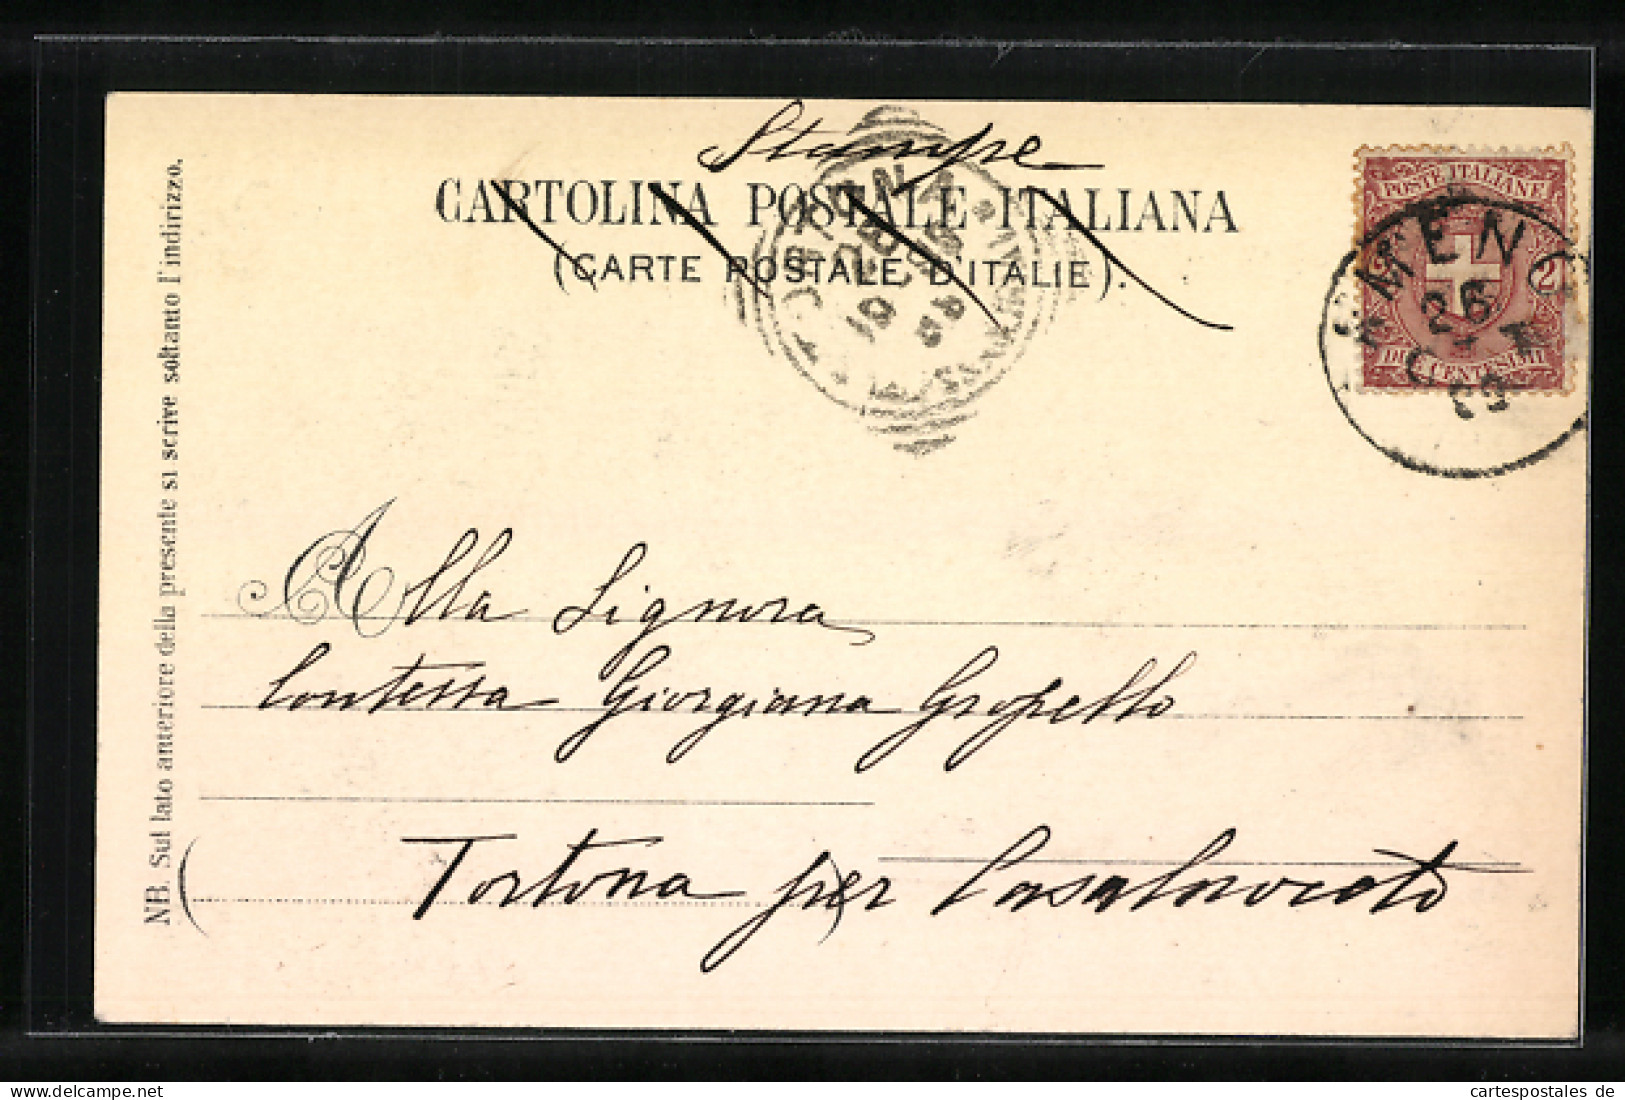 Stampe
CARTOLINA POSTALE ITALIANA
(CARTE POSTALE D'ITALIE).
POSTE ITALIANE
2 2
DUE CENTESIMI
26
99
Alla Signora
Contessa Giorgiana Gropello
Tortona per Casalnoceto
NB. Sul lato anteriore della presente si scrive soltanto l'indirizzo.
cartespostales de